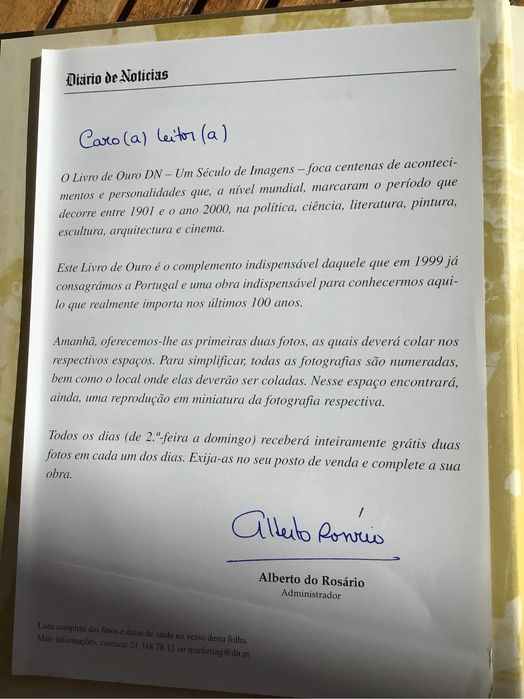 Diário de Notícias
Caro(a) Leitor(a)
O Livro de Ouro DN – Um Século de Imagens – foca centenas de aconteci-
mentos e personalidades que, a nível mundial, marcaram o período que
decorre entre 1901 e o ano 2000, na política, ciência, literatura, pintura,
escultura, arquitectura e cinema.
Este Livro de Ouro é o complemento indispensável daquele que em 1999 já
consagrámos a Portugal e uma obra indispensável para conhecermos aqui-
lo que realmente importa nos últimos 100 anos.
Amanhã, oferecemos-lhe as primeiras duas fotos, as quais deverá colar nos
respectivos espaços. Para simplificar, todas as fotografias são numeradas,
bem como o local onde elas deverão ser coladas. Nesse espaço encontrará,
ainda, uma reprodução em miniatura da fotografia respectiva.
Todos os dias (de 2.ª-feira a domingo) receberá inteiramente grátis duas
fotos em cada um dos dias. Exija-as no seu posto de venda e complete a sua
obra.
Alberto Rosário
Alberto do Rosário
Administrador
Lista completa das fotos e datas de saída no verso desta folha.
Mais informações, contacte 21 318 78 12 ou marketing@dn.pt